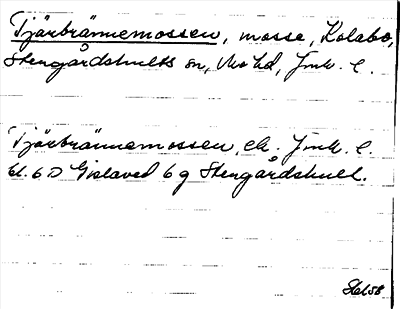 Tjärbrännemossen, mosse, Kolabo,
Stengårdshults sn, Mo hd, Jmk. l.
Tjärbrännemossen, ek. Jmk. l.
bl. 6 D Gislaved 6 g Stengårdshult.